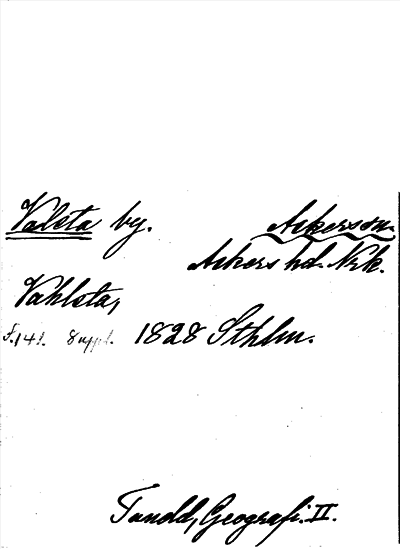 Valsta by. Askersm.
Askers hd. Nrk.
Vahlsta,
s. 141. 8 uppl. 1828 Sthlm.
Tuneld, Geografi. II.